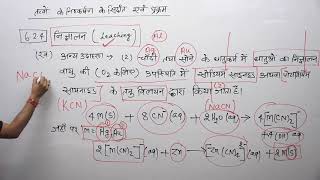 तत्वों के निष्कर्षण के सिद्धांत एवं प्रक्रम
6.2.4 निक्षालन (Leaching) Ag Au
(ख) अन्य उदाहरण → (2) चाँदी तथा सोने के धातुकर्म में धातुओं का निक्षालन
वायु की (O₂ के लिए) उपस्थिति में सोडियम सायनाइड अथवा पोटैशियम
NaCN
सायनाइड के तनु विलयन द्वारा किया जाता है।
(KCN) (NaCN)
4M(s) + 8CN⁻(aq) + 2H₂O(aq) + O₂
जहाँ पर [M = Ag/Au] 4[M(CN)₂]⁻(aq) + 4OH⁻(aq)
2[M(CN)₂]⁻(aq) + Zn → [Zn(CN)₄]²⁻(aq) + 2M(s)